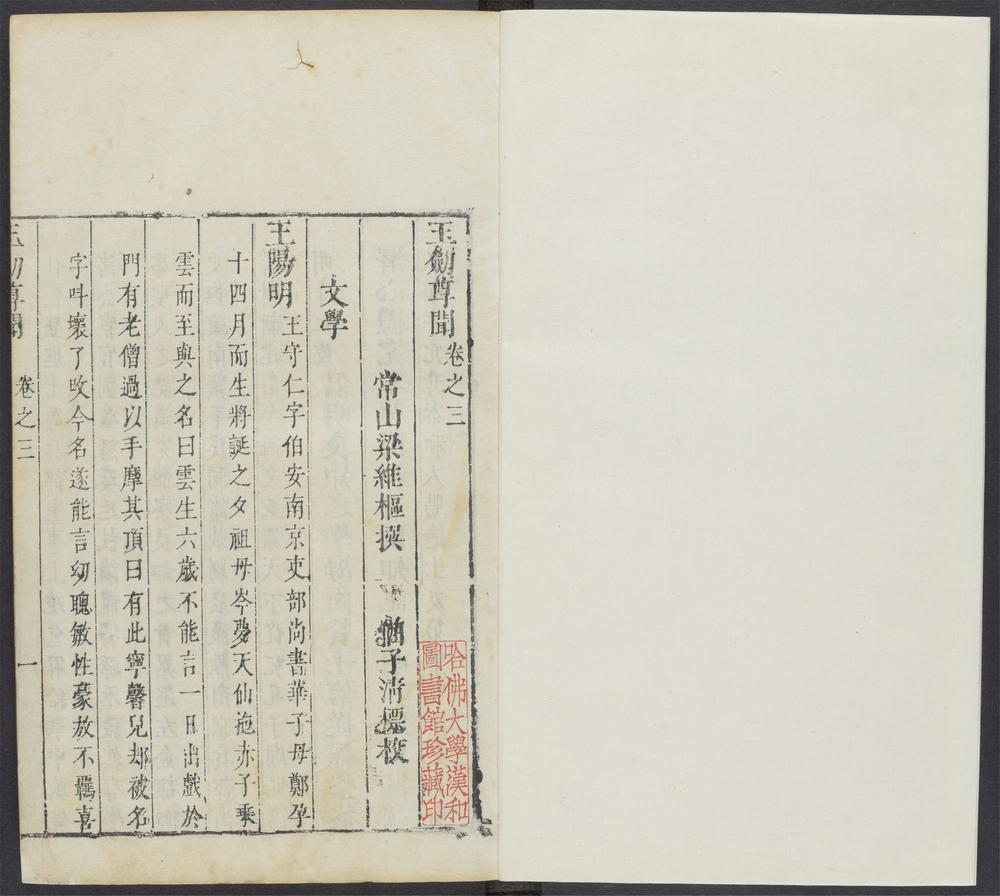 玉劍尊聞卷之三
常山梁維樞撰 猶子清標校
文學
王陽明王守仁字伯安南京吏部尚書華子母鄭孕
十四月而生將誕之夕祖母岑夢天仙抱赤子乘
雲而至與之名曰雲生六歲不能言一日出戲於
門有老僧過以手摩其頂曰有此寧馨兒却被名
字呌壞了攺今名遂能言幼聰敏性豪放不羈喜
玉劍尊聞 卷之三 一
哈佛大學漢和
圖書館珍藏印